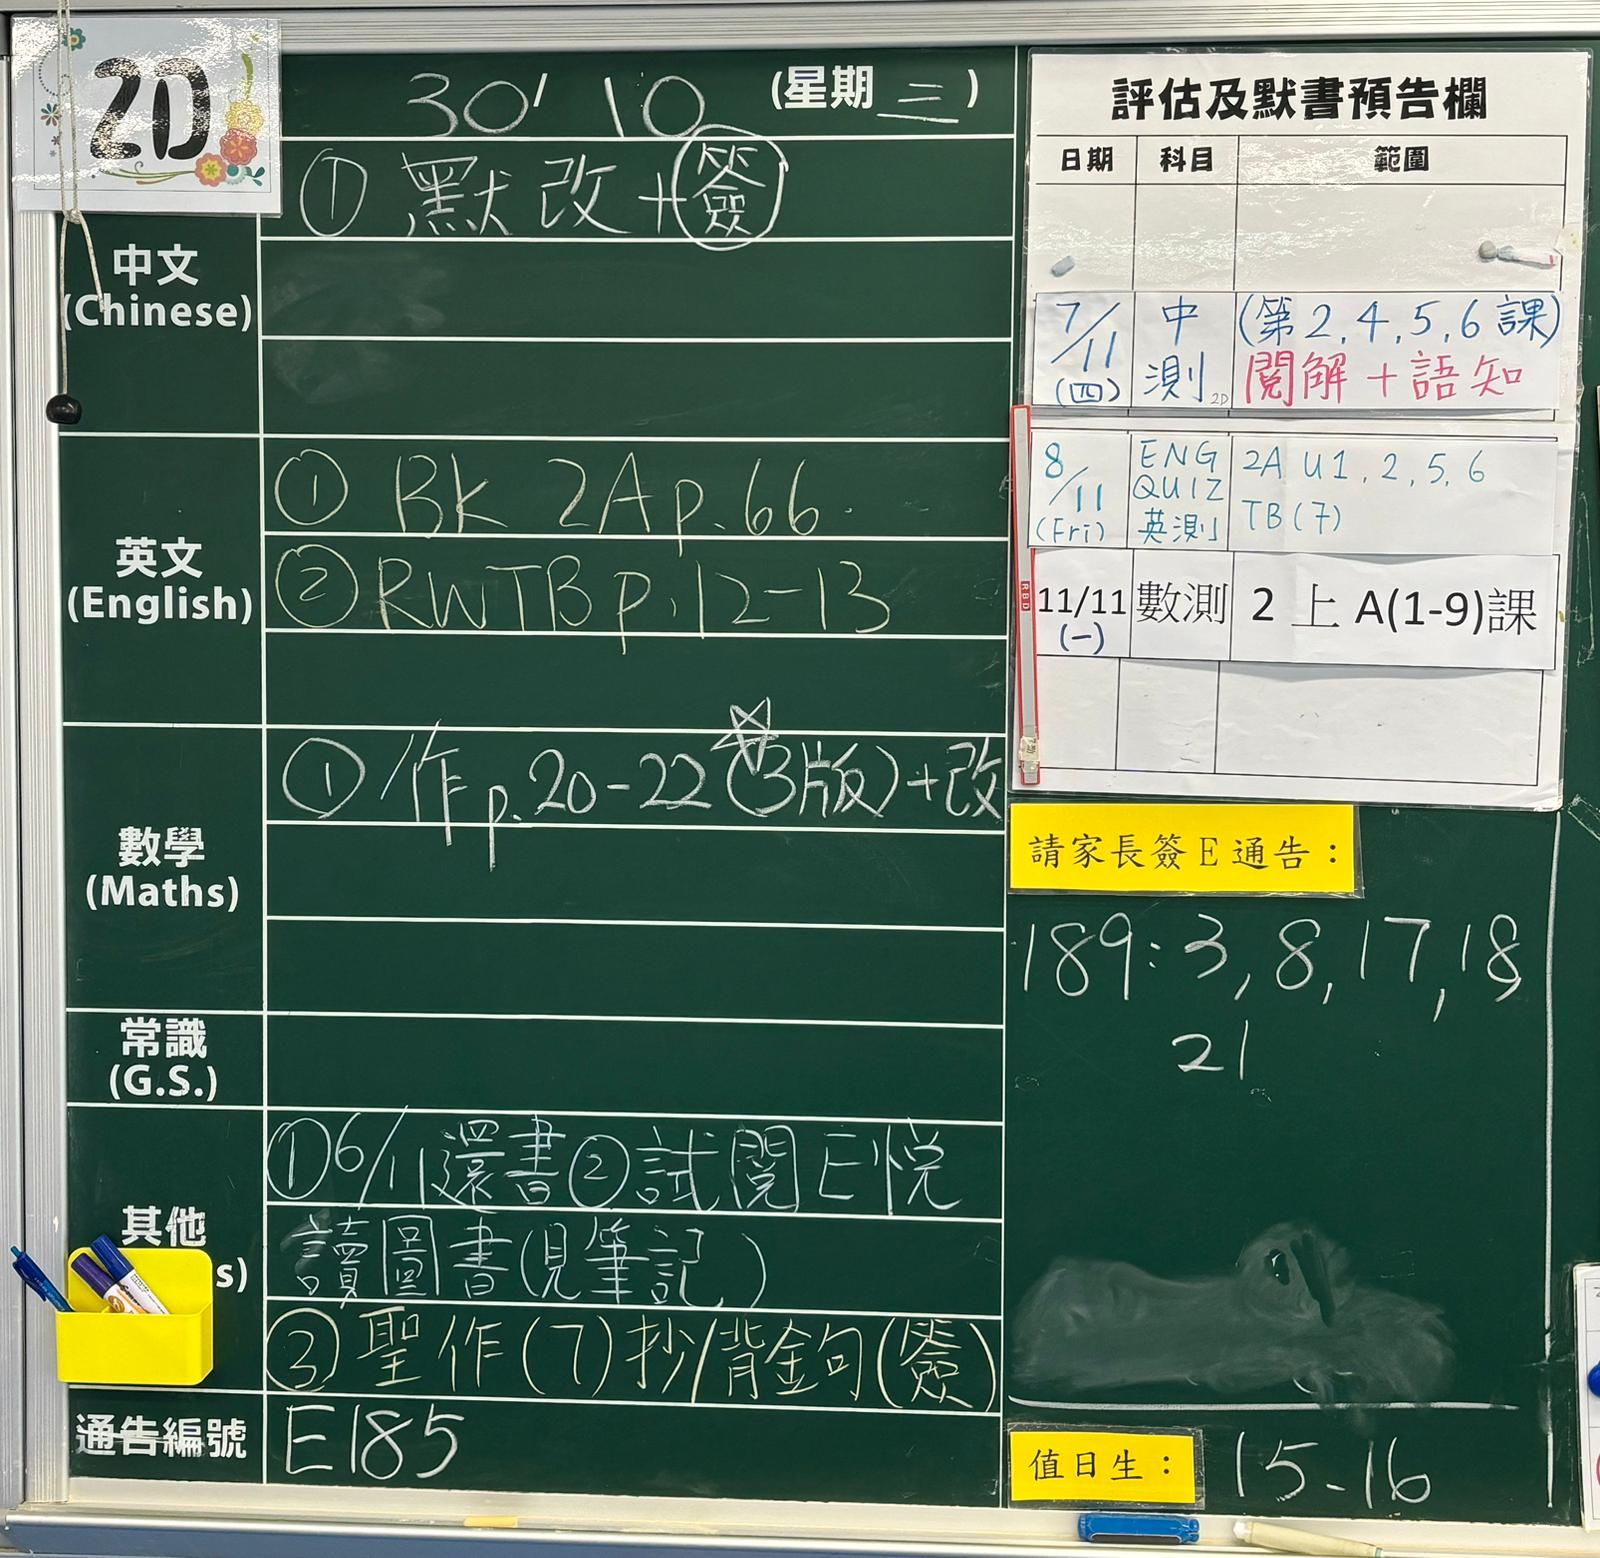 2D
30/10 (星期三)
中文
(Chinese)
① 默改+簽
英文
(English)
① BK 2A p.66.
② RWTB p.12-13
數學
(Maths)
① 作 p.20-22 (3版)+改
常識
(G.S.)
其他
s)
① 6/11還書 ② 試閱E悅
讀圖書(見筆記)
③ 聖作(7)抄/背金句(簽)
通告編號
E185
評估及默書預告欄
日期 科目 範圍
7/11 中 (第2,4,5,6課)
(四) 測 2D 閱解+語知
8/11 ENG 2A U1,2,5,6
QUIZ TB(7)
(Fri) 英測
11/11 數測 2上A(1-9)課
(一)
RBD
請家長簽E通告：
189: 3, 8, 17, 18,
21
值日生： 15-16